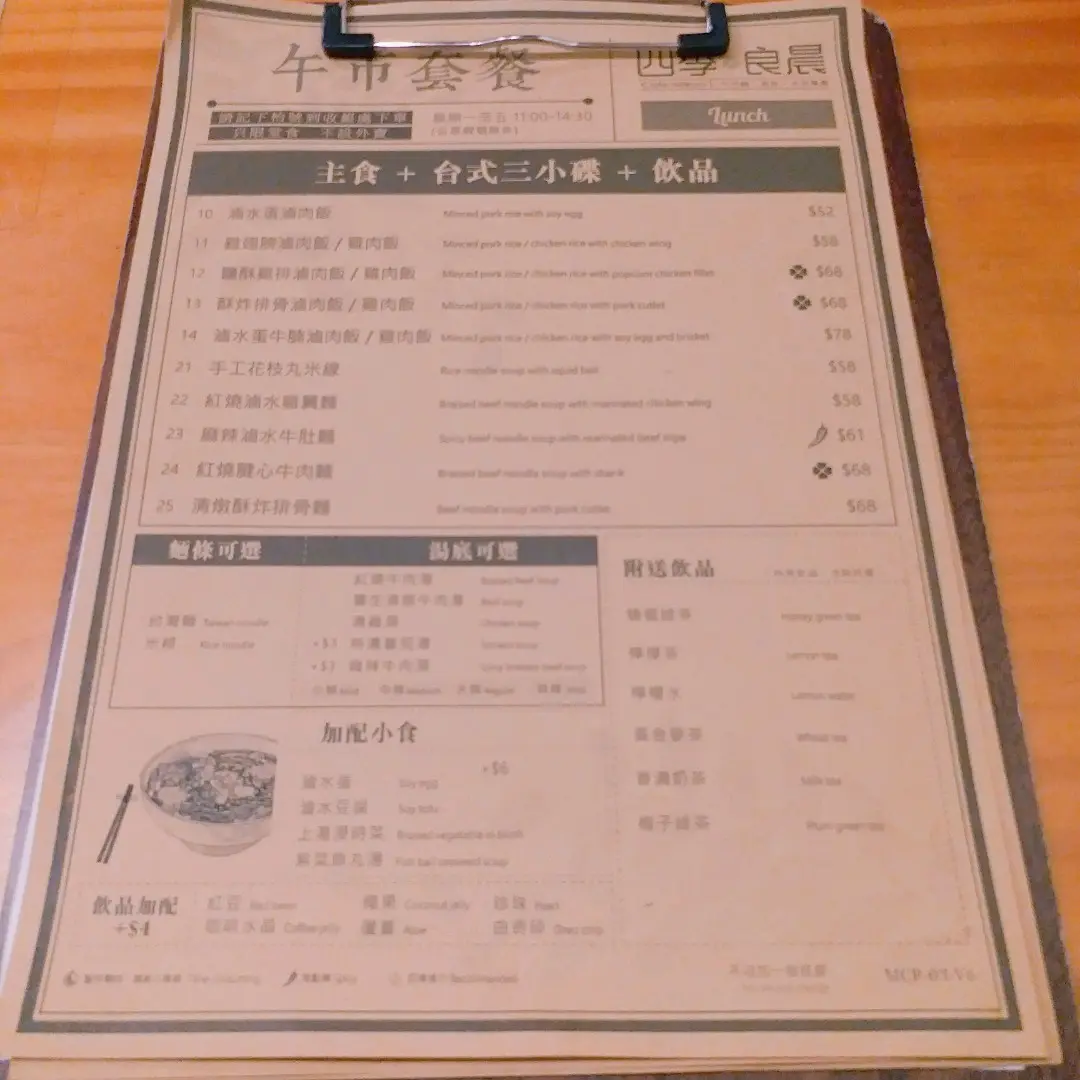 午市套餐
四季 良晨
請記下檯號到收銀處下單
只限堂食 不設外賣
星期一至五 11:00-14:30
(公眾假期除外)
Lunch
主食 + 台式三小碟 + 飲品
10 滷水蛋滷肉飯 Minced pork rice with soy egg $52
11 雞翅膀滷肉飯 / 雞肉飯 Minced pork rice / chicken rice with chicken wing $58
12 鹽酥雞排滷肉飯 / 雞肉飯 Minced pork rice / chicken rice with popcorn chicken fillet $68
13 酥炸排骨滷肉飯 / 雞肉飯 Minced pork rice / chicken rice with pork cutlet $68
14 滷水蛋牛腩滷肉飯 / 雞肉飯 Minced pork rice / chicken rice with soy egg and brisket $78
21 手工花枝丸米線 Rice noodle soup with squid ball $58
22 紅燒滷水雞翼麵 Braised beef noodle soup with marinated chicken wing $58
23 麻辣滷水牛肚麵 Spicy beef noodle soup with marinated beef tripe $61
24 紅燒腱心牛肉麵 Braised beef noodle soup with shank $68
25 清燉酥炸排骨麵 Beef noodle soup with pork cutlet $68
麵條可選
台灣麵 Taiwan noodle
米線 Rice noodle
湯底可選
紅燒牛肉湯 Braised beef soup
牛肉湯 Beef soup
清雞湯 Chicken soup
特濃蕃茄湯 Tomato soup
麻辣牛肉湯
加配小食
+$6
滷水蛋 Soy egg
滷水豆腐 Soy tofu
上湯浸時菜 Braised vegetable in broth
紫菜魚丸湯 Fish ball seaweed soup
附送飲品
蜂蜜綠茶 Honey green tea
檸檬茶 Lemon tea
檸檬水 Lemon water
黃金麥茶 Wheat tea
香滑奶茶 Milk tea
梅子綠茶 Plum green tea
飲品加配
+$4
紅豆 Red bean
椰果 Coconut jelly
珍珠 Pearl
咖啡水晶 Coffee jelly
蘆薈 Aloe
仙草 Grass jelly
不設加一服務費
MCP-03-V6